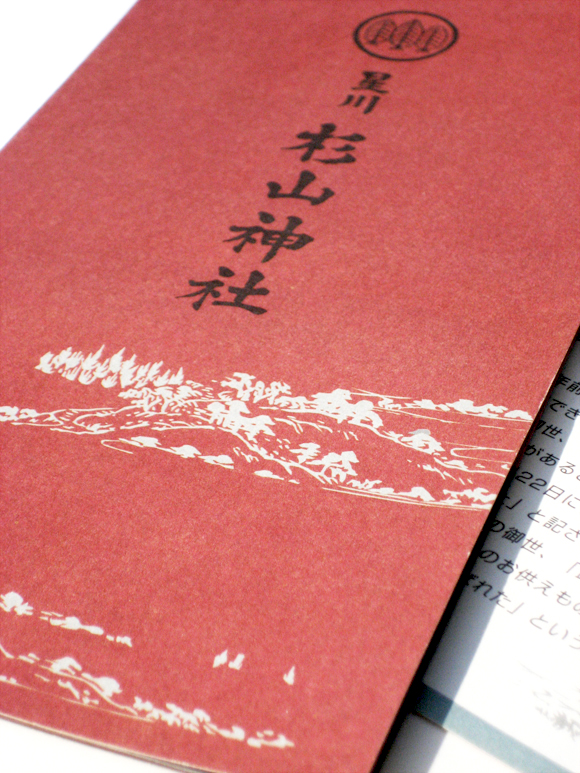 星川
杉山神社
年前
でき
御世、
があるの
22日に
」と記さ
の御世、「
のお供えもの
ぞれた」という